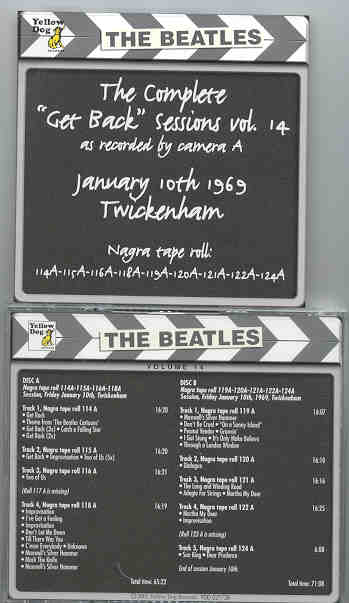 Yellow Dog
THE BEATLES
The Complete
"Get Back" Sessions vol. 14
as recorded by camera A
January 10th 1969
Twickenham
Nagra tape roll:
114A-115A-116A-118A-119A-120A-121A-122A-124A
Yellow Dog
THE BEATLES
VOLUME 14
DISC A
Nagra tape roll 114A-115A-116A-118A
Session, Friday January 10th, Twickenham
Track 1, Nagra tape roll 114 A 16:20
• Get Back
• Theme from 'The Beatles Cartoons'
• Get Back (3x) • Catch a Falling Star
• Get Back (2x)
Track 2, Nagra tape roll 115 A 16:20
• Get Back • Improvisation • Two of Us (5x)
Track 3, Nagra tape roll 116 A 16:21
• Two of Us
(Roll 117 A is missing)
Track 4, Nagra tape roll 118 A 16:19
• Improvisation
• I've Got a Feeling
• Improvisation
• Don't Let Me Down
• Till There Was You
• C'mon Everybody • Unknown
• Maxwell's Silver Hammer
• Mack The Knife
• Maxwell's Silver Hammer
Total time: 65:22
DISC B
Nagra tape roll 119A-120A-121A-122A-124A
Session, Friday January 10th, 1969, Twickenham
Track 1, Nagra tape roll 119 A 16:07
• Maxwell's Silver Hammer
• Don't Be Cruel • "On a Sunny Island"
• Peanut Vendor • Groovin'
• I Got Stung • It's Only Make Believe
• Through a London Window
Track 2, Nagra tape roll 120 A 16:10
• Dialogue
Track 3, Nagra tape roll 121 A 16:16
• The Long and Winding Road
• Adagio For Strings • Martha My Dear
Track 4, Nagra tape roll 122 A 16:25
• Martha My Dear
• Improvisation
(Roll 123 A is missing)
Track 5, Nagra tape roll 124 A 6:08
• Sun King • Dear Prudence
End of session January 10th
Total time: 71:08
Yellow Dog Records